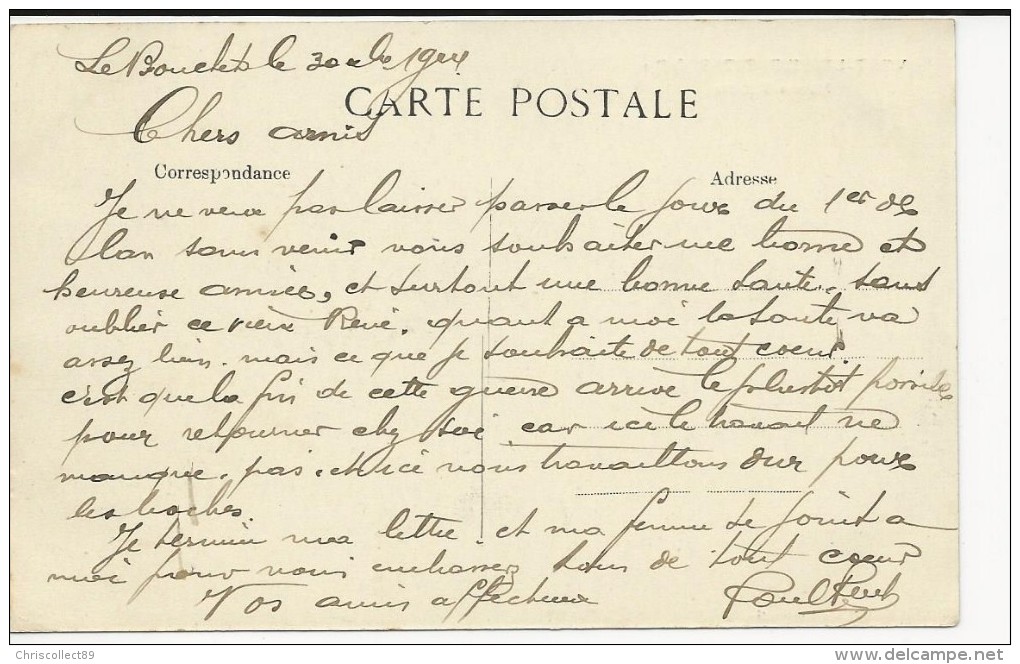 Le Bouchet le 30 1914
CARTE POSTALE
Chers amis
Correspondance
Adresse
Je ne veux pas laisser passer le jour du 1er de
lan sans venir vous souhaiter une bonne et
heureuse année, et surtout une bonne santé. sans
oublier ce vieux René. quant a moi la santé va
assez bien. mais ce que je souhaite de tout coeur.
c'est que la fin de cette guerre arrive le plustot possible
pour retourner chez soi car ici le travail ne
manque pas. et ici nous travaillons dur pour
les boches.
Je termine ma lettre. et ma femme se joint a
moi pour vous embrasser tous de tout coeur
Vos amis affectueux
Paul
Chriscollect89
delcampe.net